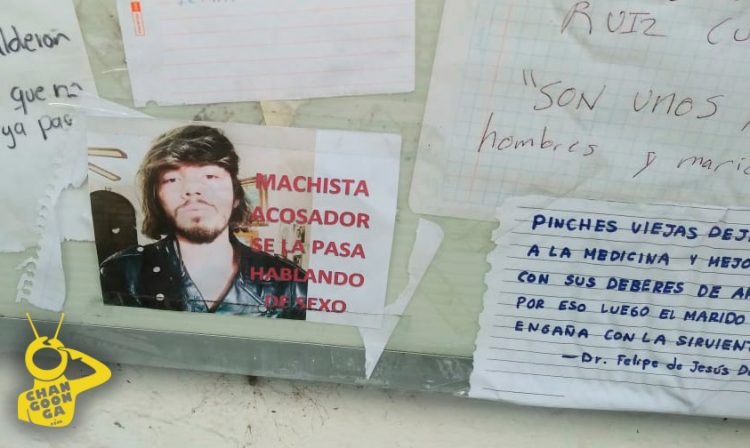 alderón
que no
ya pa
RUIZ CU
"SON UNOS
hombres y mari
MACHISTA
ACOSADOR
SE LA PASA
HABLANDO
DE SEXO
PINCHES VIEJAS DEJ
A LA MEDICINA Y MEJO
CON SUS DEBERES DE AM
POR ESO LUEGO EL MARIDO
ENGAÑA CON LA SIRVIENT
— Dr. Felipe de Jesús D
CHAN
GOON
GA
.com